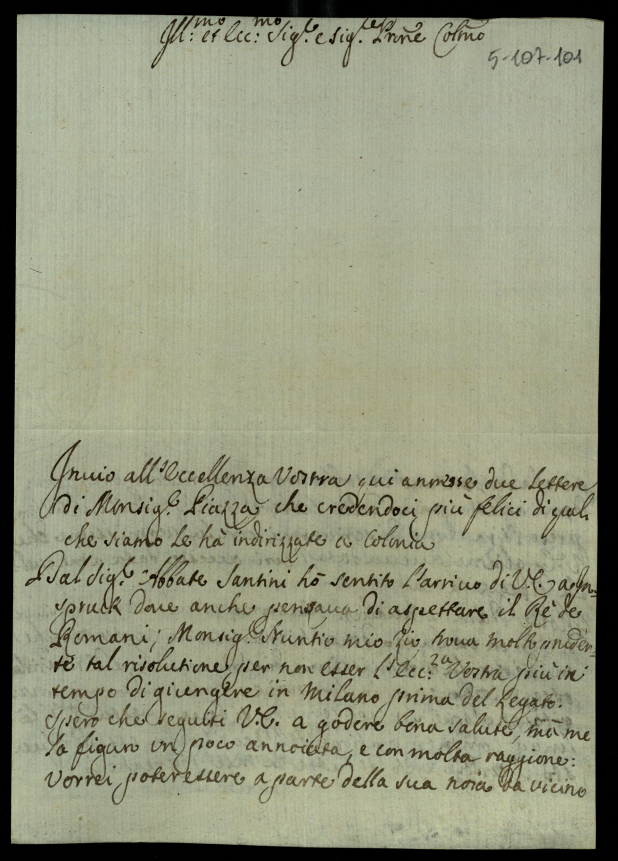 Ill:mo et Ecc:mo Sig.e e Sig.e Prñe Colmo
5-107-101
Inuio all'Eccellenza Vostra qui annesse due lettere
di Monsig.e Piazza che credendoci più felici di quel
che siamo le hà indirizzate a Colonia
Dal Sig.e Abbate Santini hò sentito l'arriuo di V.E. a In=
spruck doue anche pensaua di aspettare il Rè de
Romani; Monsig.e Nuntio mio Zio troua molto pruden=
te tal risolutione per non esser l'Ecc.za Vostra più in
tempo di giungere in Milano prima del Legato.
Spero che seguiti V.E. a godere bona salute, mà me
la figuro un poco annoiata, e con molta raggione:
Vorrei poter essere a parte della sua noia da vicino